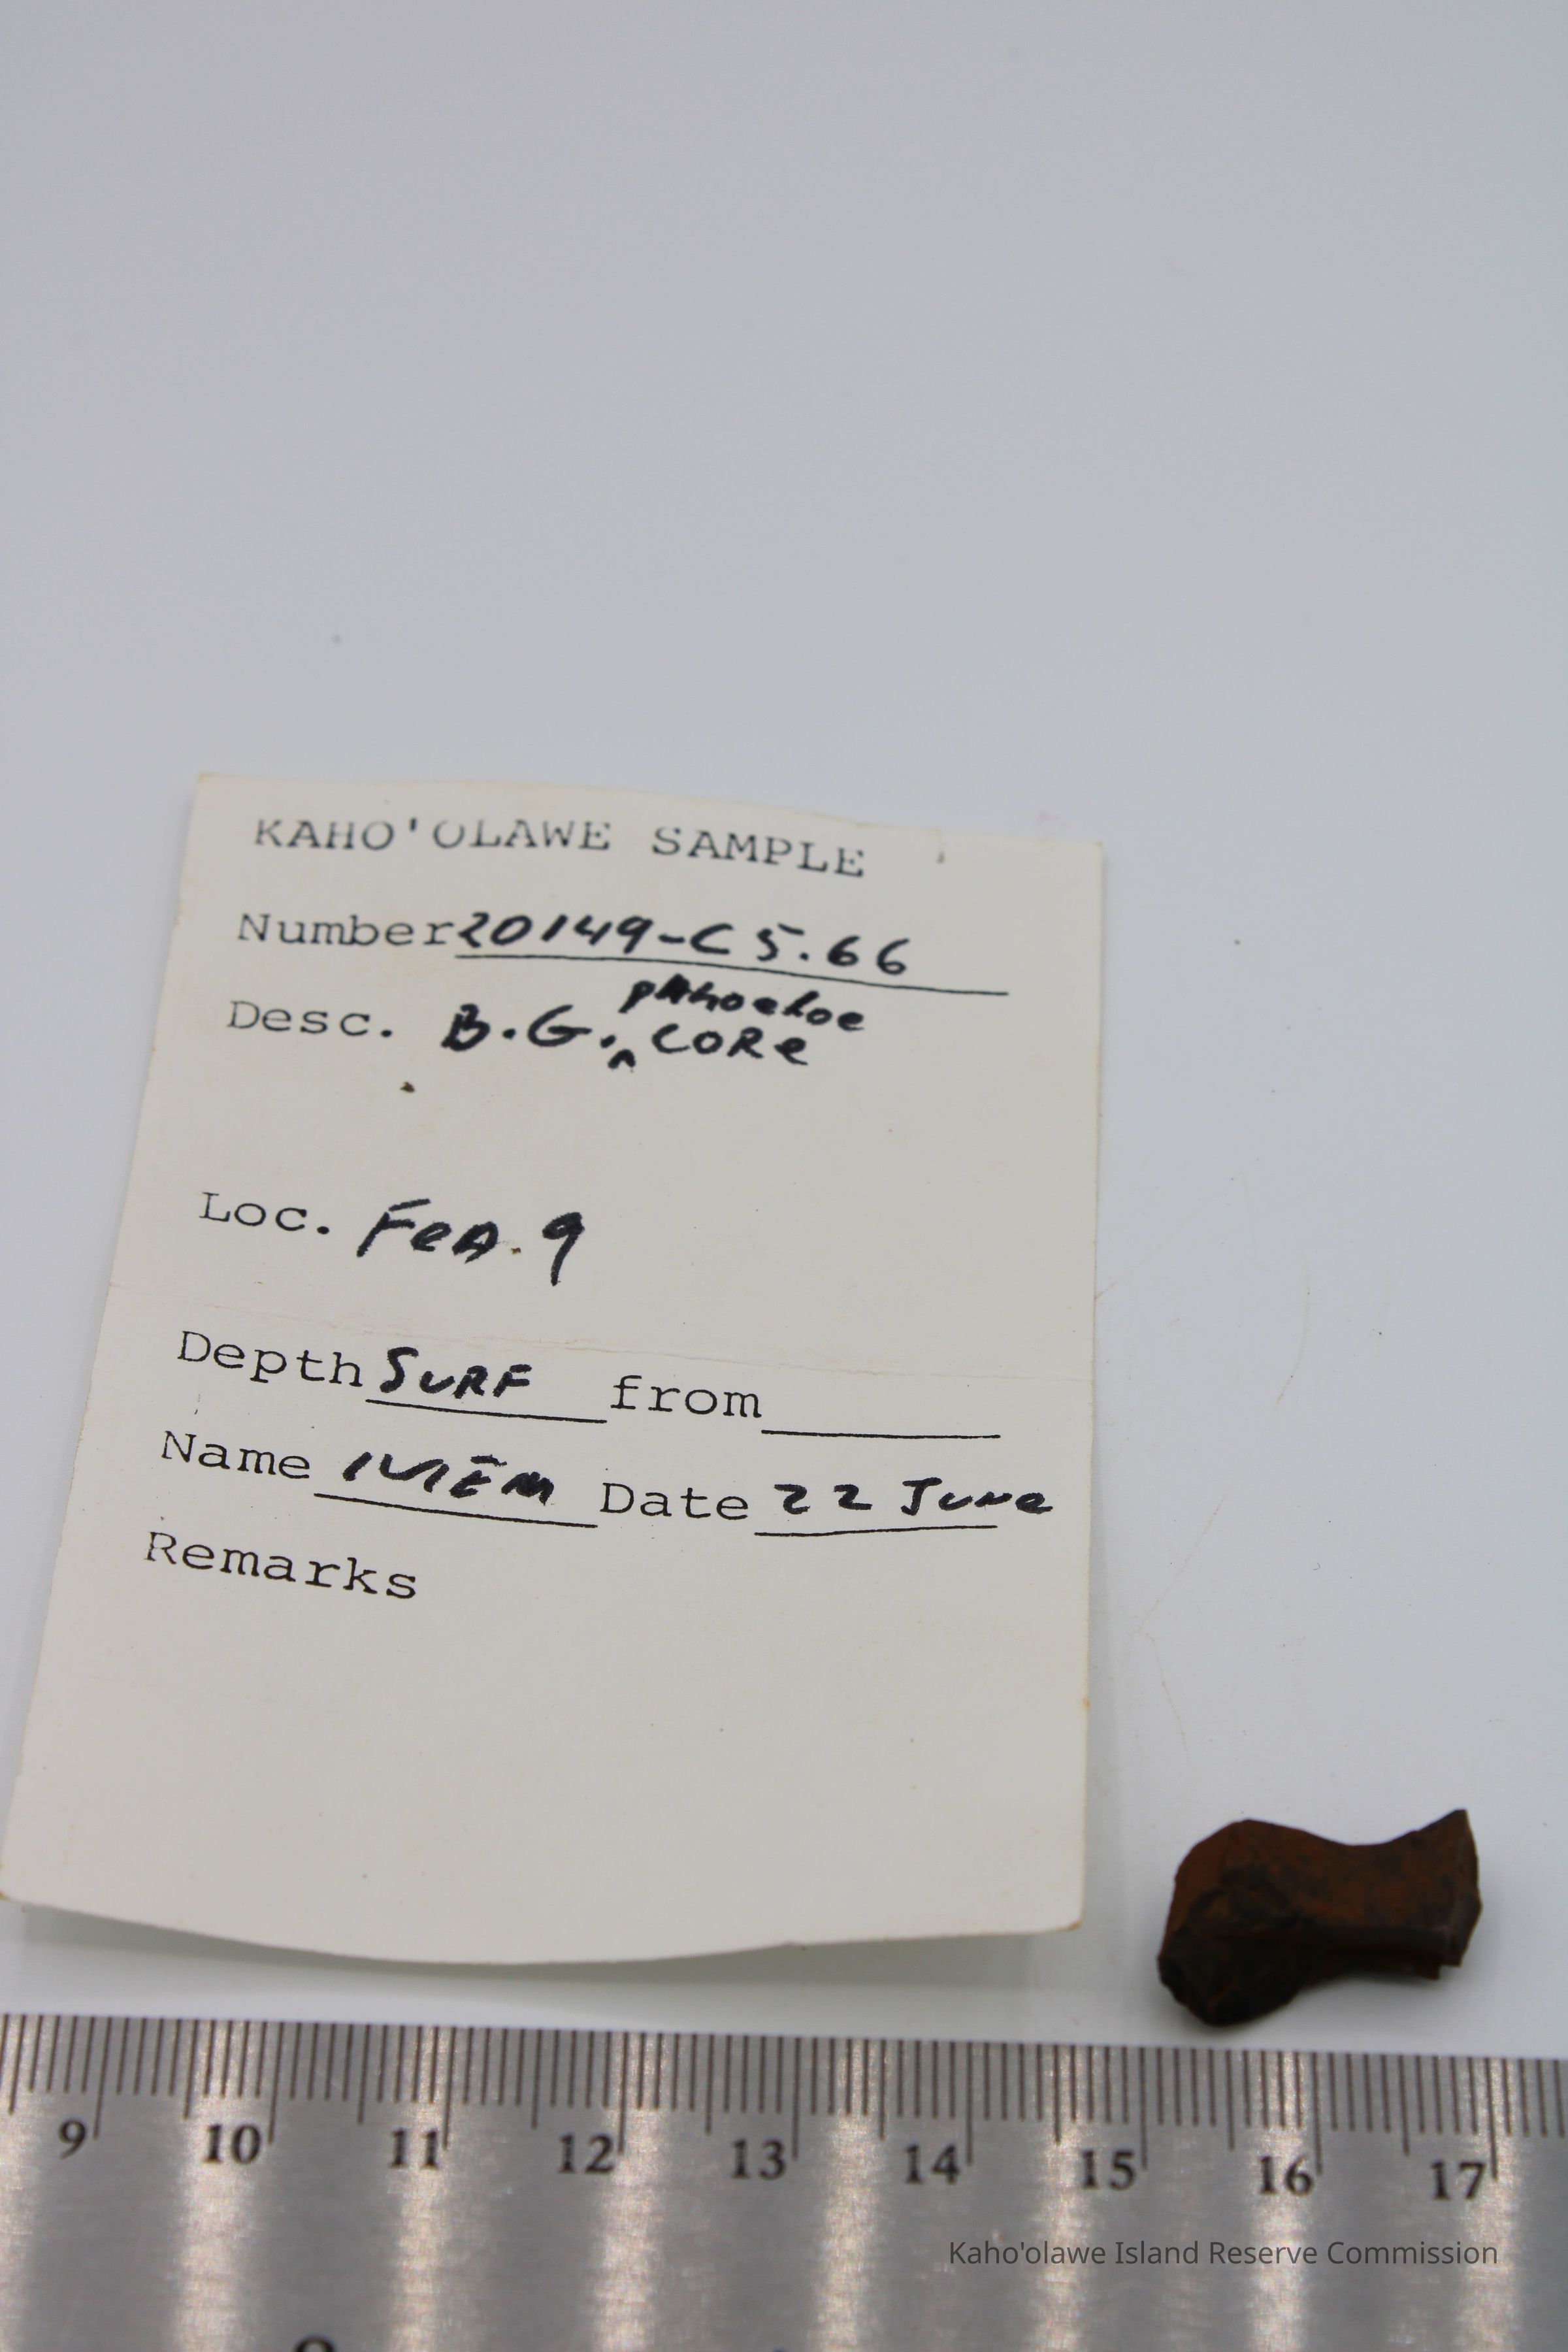 KAHO'OLAWE SAMPLE
Number 20149-C5.66
Desc. B.G. pahoehoe CORe
Loc. FeA. 9
Depth SURF from
Name Date 22 June
Remarks
9 10 11 12 13 14 15 16 17
Kaho'olawe Island Reserve Commission